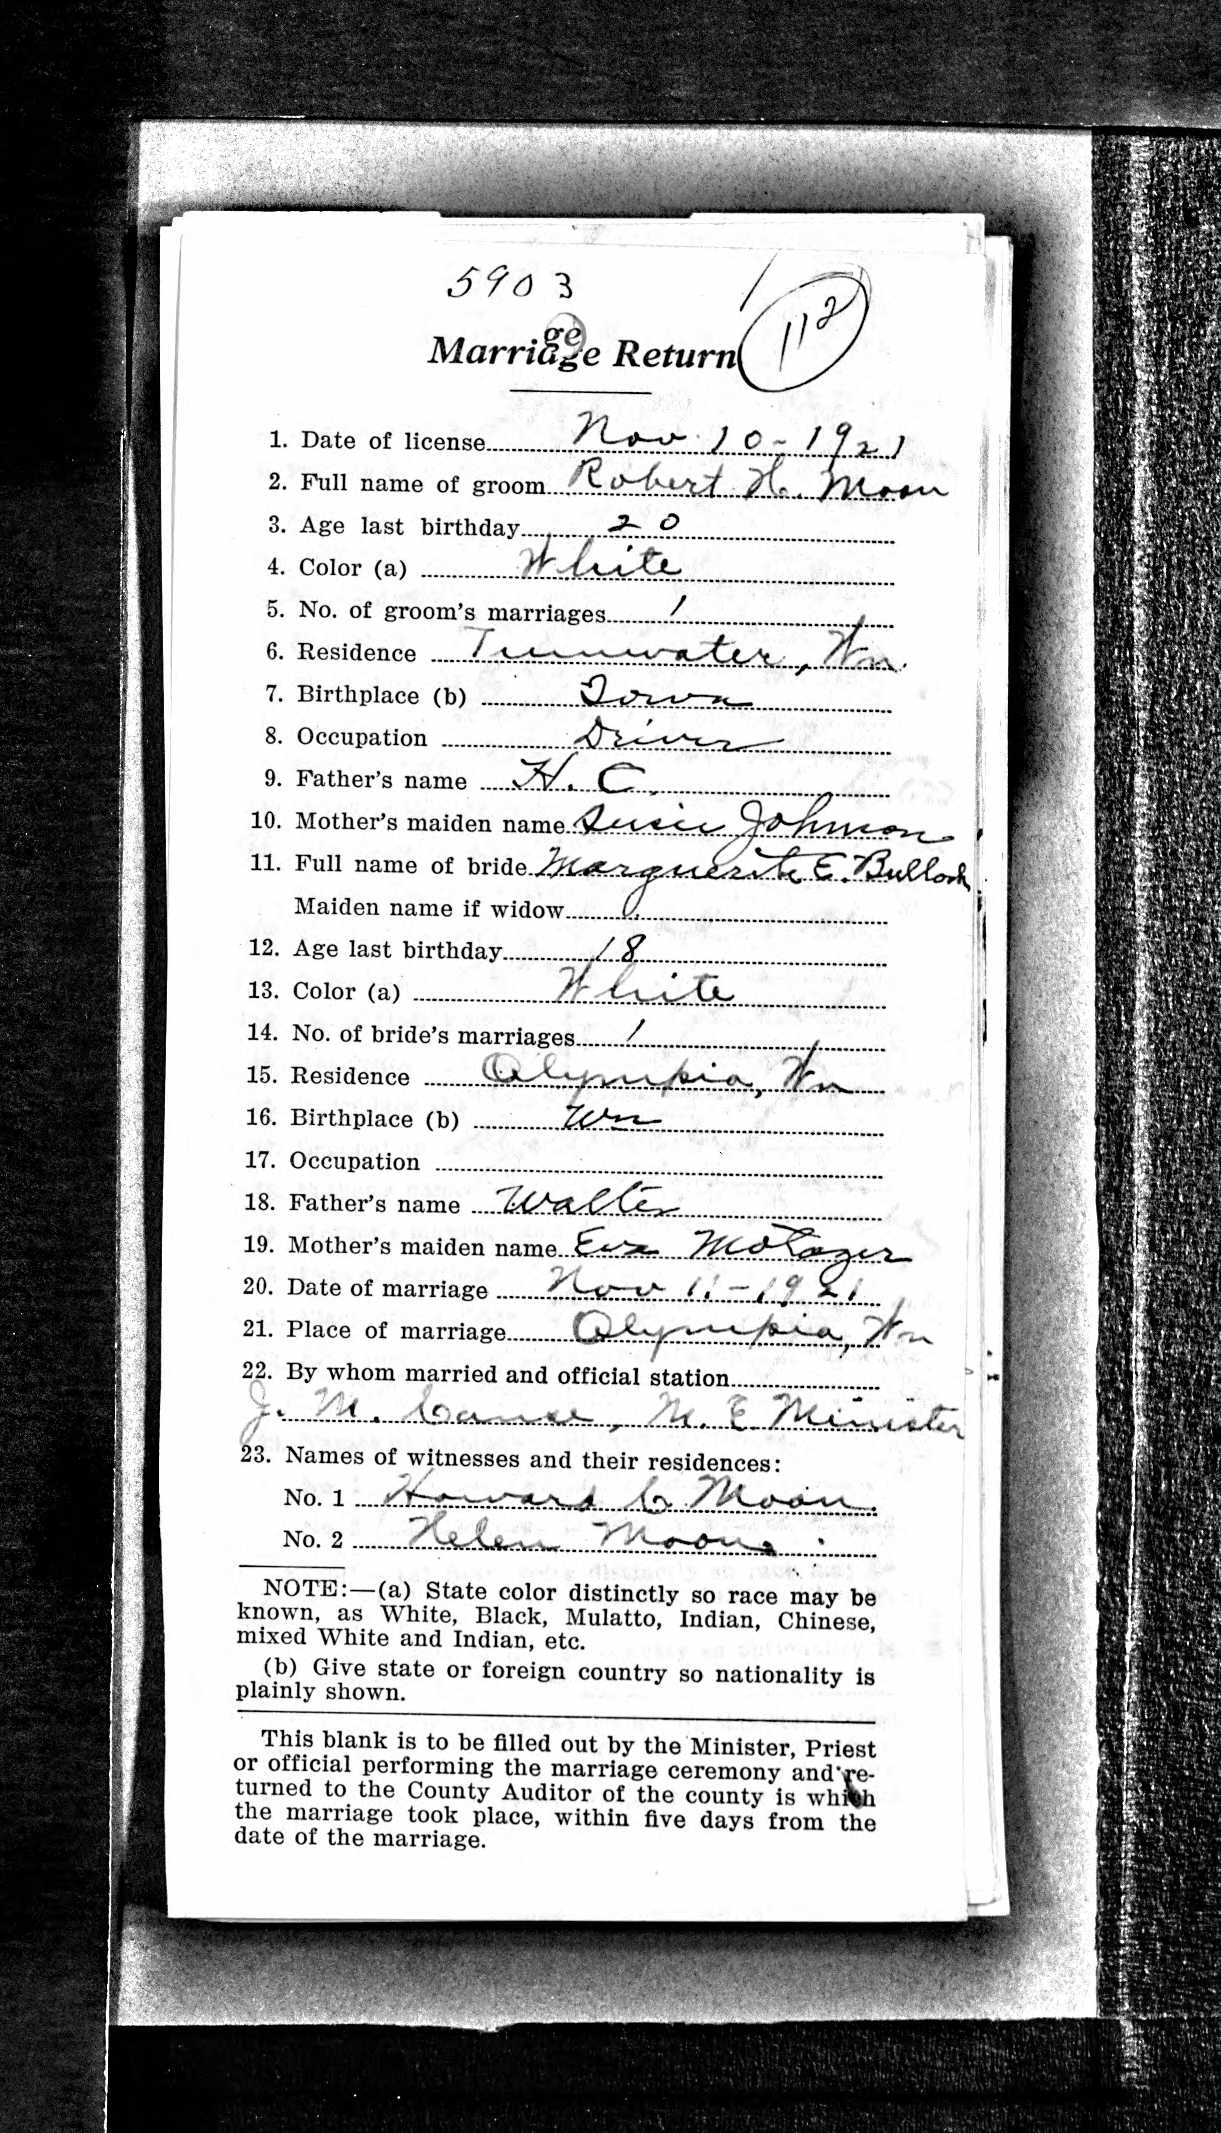 5903
112
Marriage Return
1. Date of license Nov 10-1921
2. Full name of groom Robert H. Moon
3. Age last birthday 20
4. Color (a) White
5. No. of groom's marriages 1
6. Residence Tumwater, Wn.
7. Birthplace (b) Iowa
8. Occupation Driver
9. Father's name H. C.
10. Mother's maiden name Susie Johnson
11. Full name of bride Marguerite E. Bullock
Maiden name if widow
12. Age last birthday 18
13. Color (a) White
14. No. of bride's marriages 1
15. Residence Olympia, Wn
16. Birthplace (b) Wn
17. Occupation
18. Father's name Walter
19. Mother's maiden name Eva
20. Date of marriage Nov 11-1921
21. Place of marriage Olympia, Wn
22. By whom married and official station
J. M. Canse, M. E Minister
23. Names of witnesses and their residences:
No. 1 Howard C Moon.
No. 2 Helen Moon
NOTE:—(a) State color distinctly so race may be
known, as White, Black, Mulatto, Indian, Chinese,
mixed White and Indian, etc.
(b) Give state or foreign country so nationality is
plainly shown.
This blank is to be filled out by the Minister, Priest
or official performing the marriage ceremony and re-
turned to the County Auditor of the county is which
the marriage took place, within five days from the
date of the marriage.